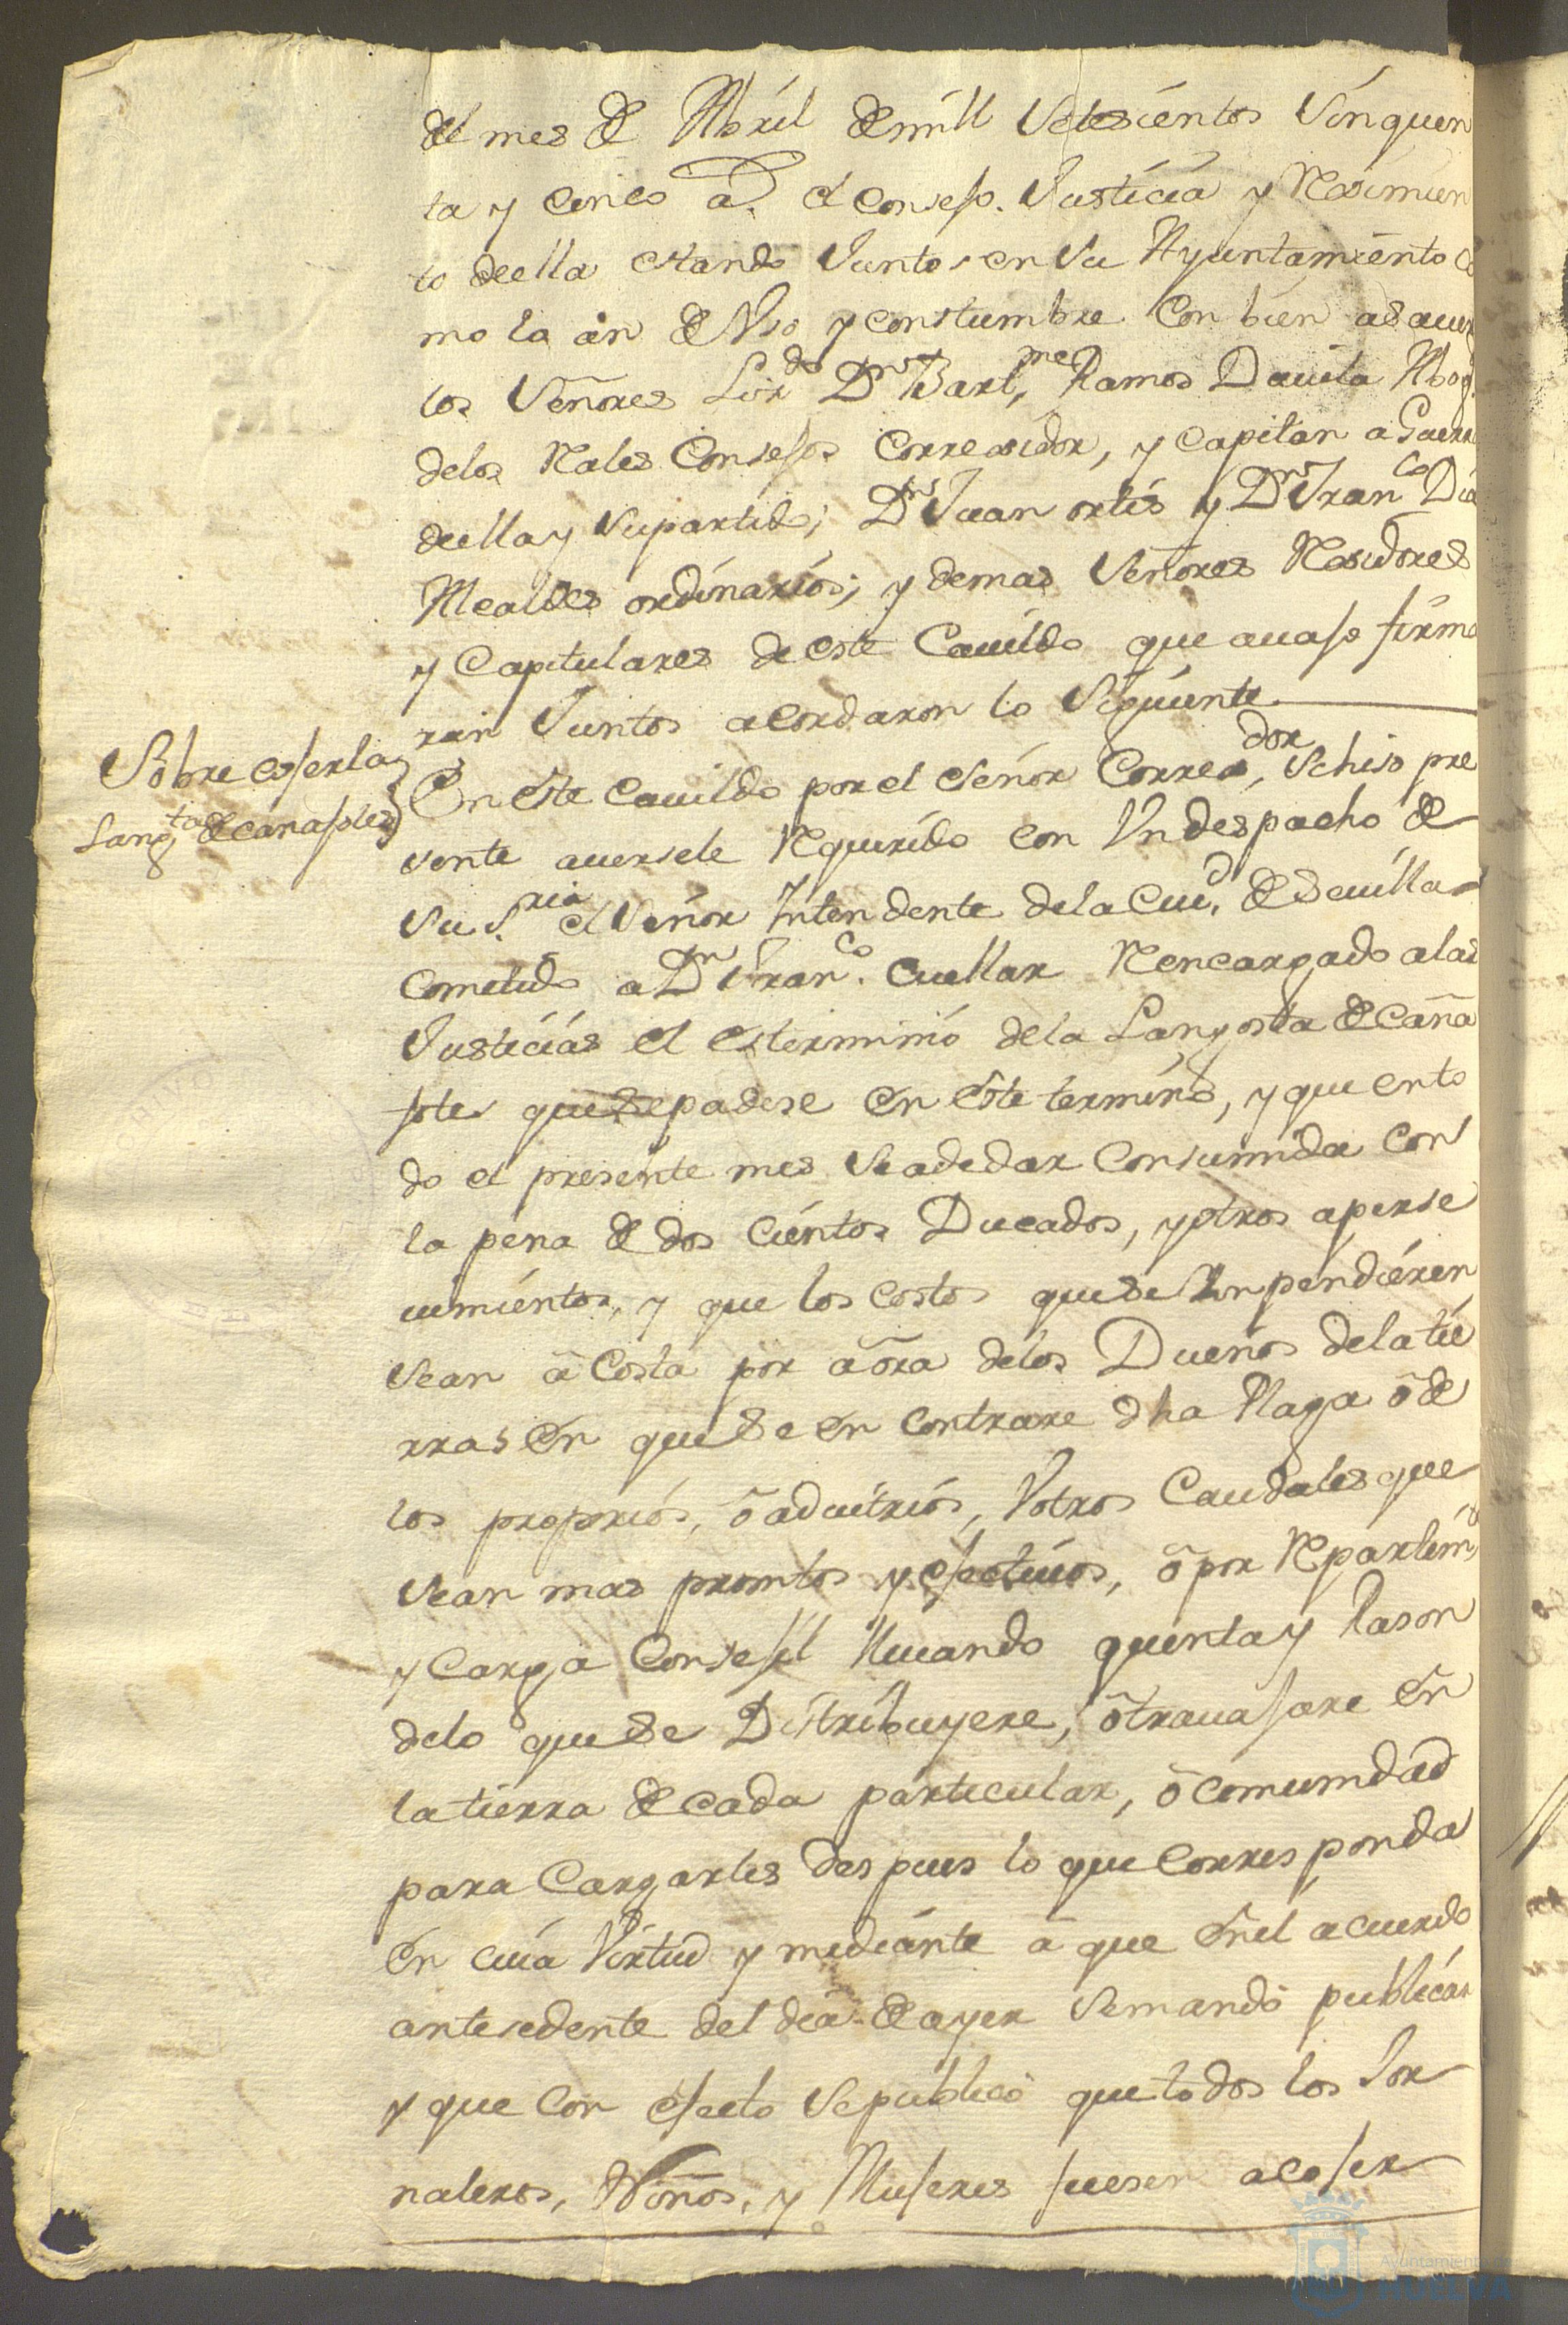 del mes de Abril de mill Setesientos Sinquen
ta y cinco a.s el consejo. Justicia y Reximien
to de ella estando Juntos en su Ayuntamiento Co
mo lo an de Vso y constumbre Conbien asauer
los Señores Liz.do D.n Bart.me Ramos Dauila Abog.
delos Rales Consejos Correxidor, y Capitan a Guerra
deella y Supartido; D.n Juan ortis y D.n Fran.co Dia
Alcaldes ordinarios; y demas Señores Rexidores
y Capitulares de este Cauildo que auajo firma
ran Juntos acordaron lo Siguiente
Sobre cojer la
Lang.ta de canajotes
En este cauildo por el Señor Correx.dor, Sehiso pre
sente auersele Requerido con Vn despacho de
Su S.ria el Señor Intendente dela Ciu.d de Seuilla
Cometido a D.n Fran.co Cuellar Rencargado alas
Justicias el esterminio dela Langosta de Caña
jotes que se padese en este termino, y que en to
do el presente mes Se a de dar Consumida Con
la pena de dos Cientos Ducados, y otros aperse
uimientos, y que los costos que se Ynpendieren
Sean â Costa por aôra delos Dueños dela tie
rras en que Se en contrare dha Plaga ô de
los proprios, ô aduitrios, Votros Caudales que
Sean mas promtos y efectiuos, ô por Repartim,
y Carga Consejil lleuando quenta y Rason
delo que Se Distribuyere, ô trauajare en
la tierra de cada particular, ô comunidad
para Cargarles despues lo que Corresponda
en cuia Virtud y mediante â que en el acuerdo
antesedente del dia de ayer Semandó publicar
y que Con efecto Sepublicó que todos los Jor
naleros, Niños, y Mujeres fuesen acojer
Ayuntamiento de
HUELVA